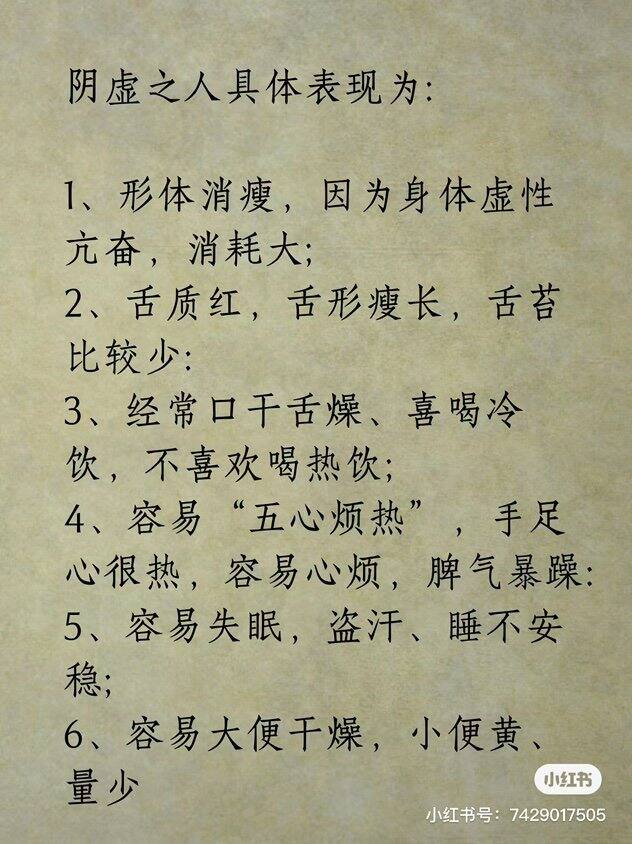 阴虚之人具体表现为:
1、形体消瘦，因为身体虚性
亢奋，消耗大;
2、舌质红，舌形瘦长，舌苔
比较少:
3、经常口干舌燥、喜喝冷
饮，不喜欢喝热饮;
4、容易“五心烦热”，手足
心很热，容易心烦，脾气暴躁:
5、容易失眠，盗汗、睡不安
稳;
6、容易大便干燥，小便黄、
量少
小红书
小红书号：7429017505